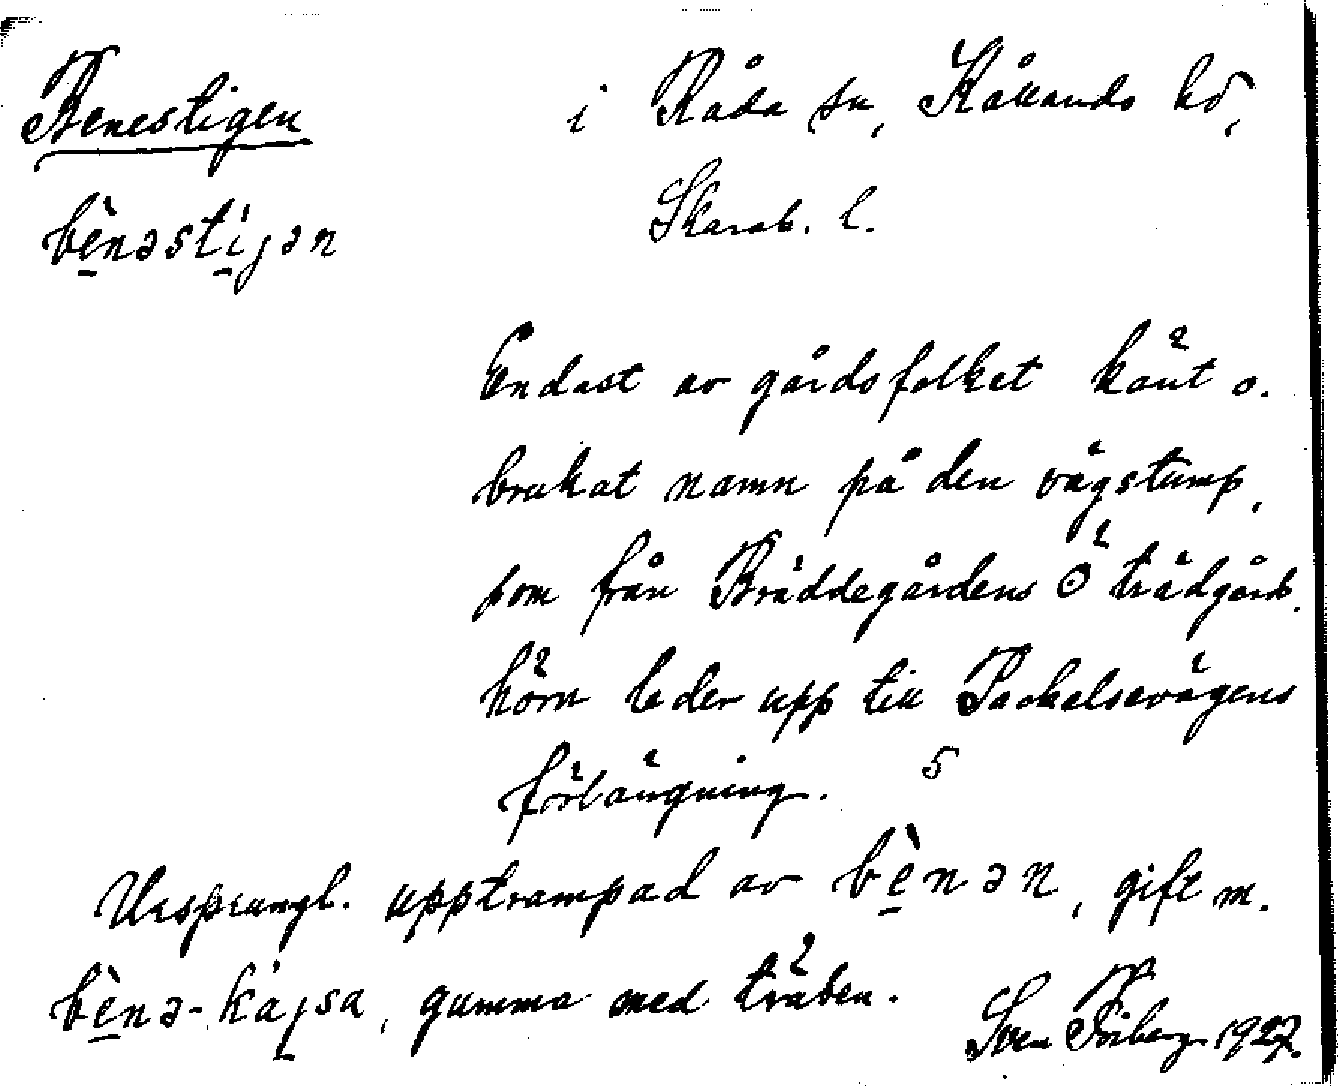 Benestigen i Råda sn, Kållands hd,
bènəstijən Skarab. l.
Endast av gårdsfolket känt o.
brukat namn på den vägstump,
som från Bräddegårdens Ö trädgårds
hörn leder upp till Packelsevägens
förlängning. 5
Ursprungl. upptrampad av bènən, gift m.
bènə-kajsa, gumma med träben.
Sven Friberg 1927.